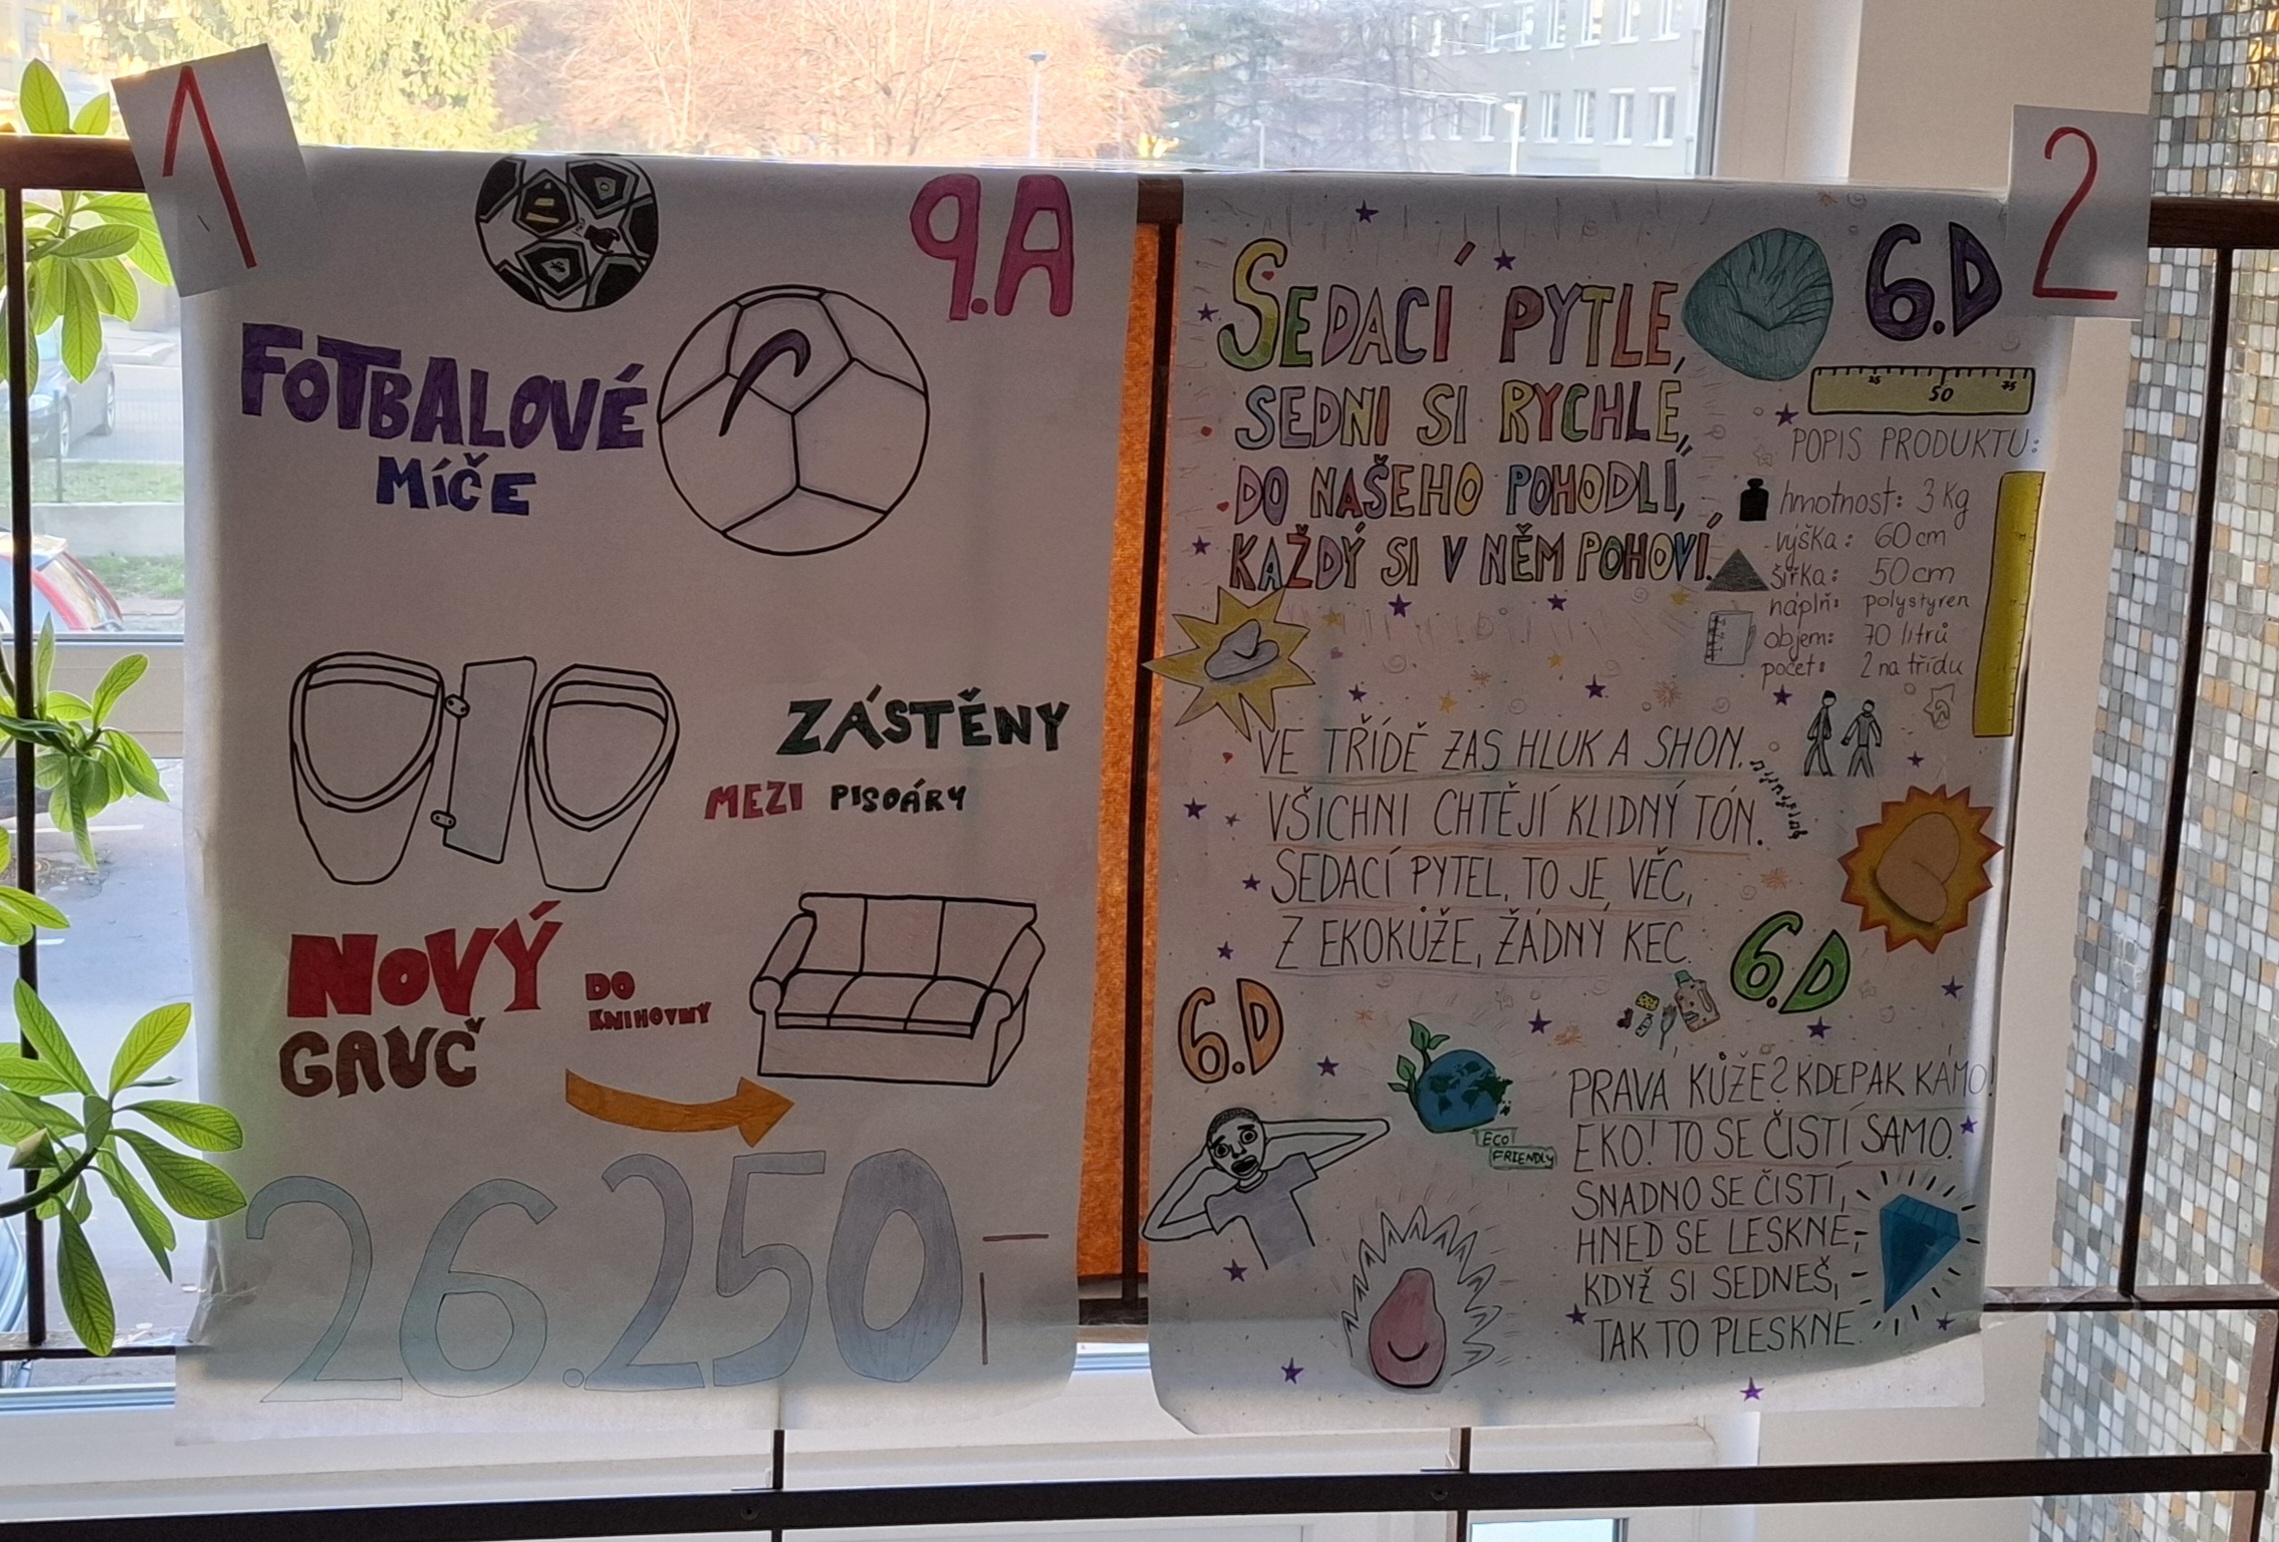 1
9.A
FOTBALOVÉ
MÍČE
ZÁSTĚNY
MEZI PISOÁRY
NOVÝ
GAUČ
DO
KNIHOVNY
26.250,-
2
6.D
SEDACÍ PYTLE,
SEDNI SI RYCHLE,
DO NAŠEHO POHODLÍ,
KAŽDÝ SI V NĚM POHOVÍ.
25 50 75
POPIS PRODUKTU:
hmotnost: 3 kg
výška: 60 cm
šířka: 50 cm
náplň: polystyren
objem: 70 litrů
počet: 2 na třídu
VE TŘÍDĚ ZAS HLUK A SHON.
VŠICHNI CHTĚJÍ KLIDNÝ TÓN.
SEDACÍ PYTEL, TO JE VĚC,
Z EKOKŮŽE, ŽÁDNÝ KEC.
6.D
6.D
ECO
FRIENDLY
PRAVÁ KŮŽE? KDEPAK KÁMO!
EKO! TO SE ČISTÍ SAMO.
SNADNO SE ČISTÍ,
HNED SE LESKNE,
KDYŽ SI SEDNEŠ,
TAK TO PLESKNE.